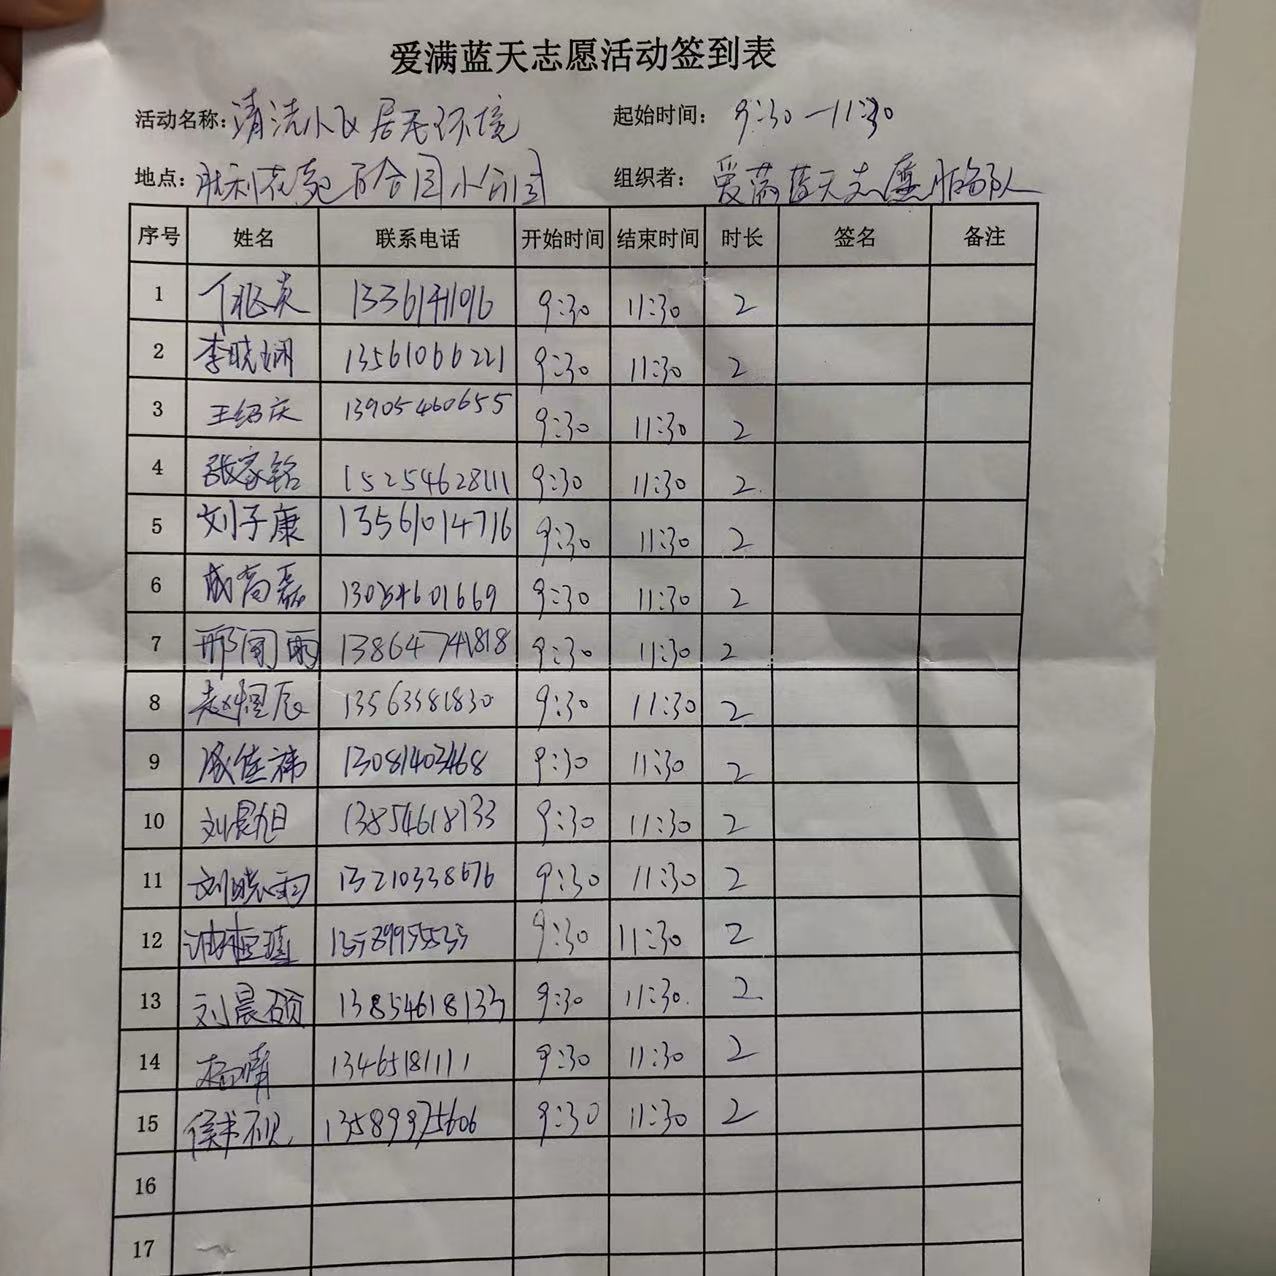 爱满蓝天志愿活动签到表
活动名称：清洁小区居民环境 起始时间： 9:30—11:30
地点：胜利花苑百合园小公园 组织者： 爱满蓝天志愿服务队
序号 姓名 联系电话 开始时间 结束时间 时长 签名 备注
1 9:30 11:30 2
2 李晓娴 13561066221 9:30 11:30 2
3 王绍庆 13905460655 9:30 11:30 2
4 张家铭 15254628111 9:30 11:30 2
5 刘子康 13561014716 9:30 11:30 2
6 成高磊 9:30 11:30 2
7 邢闰雨 13864741818 9:30 11:30 2
8 赵煜辰 13563381830 9:30 11:30 2
9 成佳祎 13081403468 9:30 11:30 2
10 刘晨旭 13854618133 9:30 11:30 2
11 刘晓雨 13210338676 9:30 11:30 2
12 13589955535 9:30 11:30 2
13 刘晨硕 13854618133 9:30 11:30 2
14 杨晴 13465181111 9:30 11:30 2
15 13589975606 9:30 11:30 2
16
17